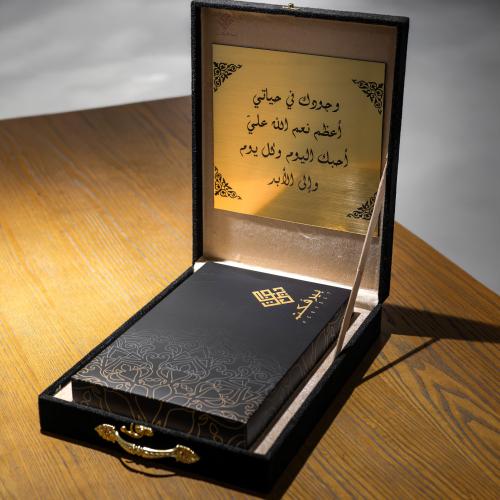 وجودك في حياتي
أعظم نعم الله عليّ
أحبك اليوم وكل يوم
وإلى الأبد
بيرفكت
PERFECT